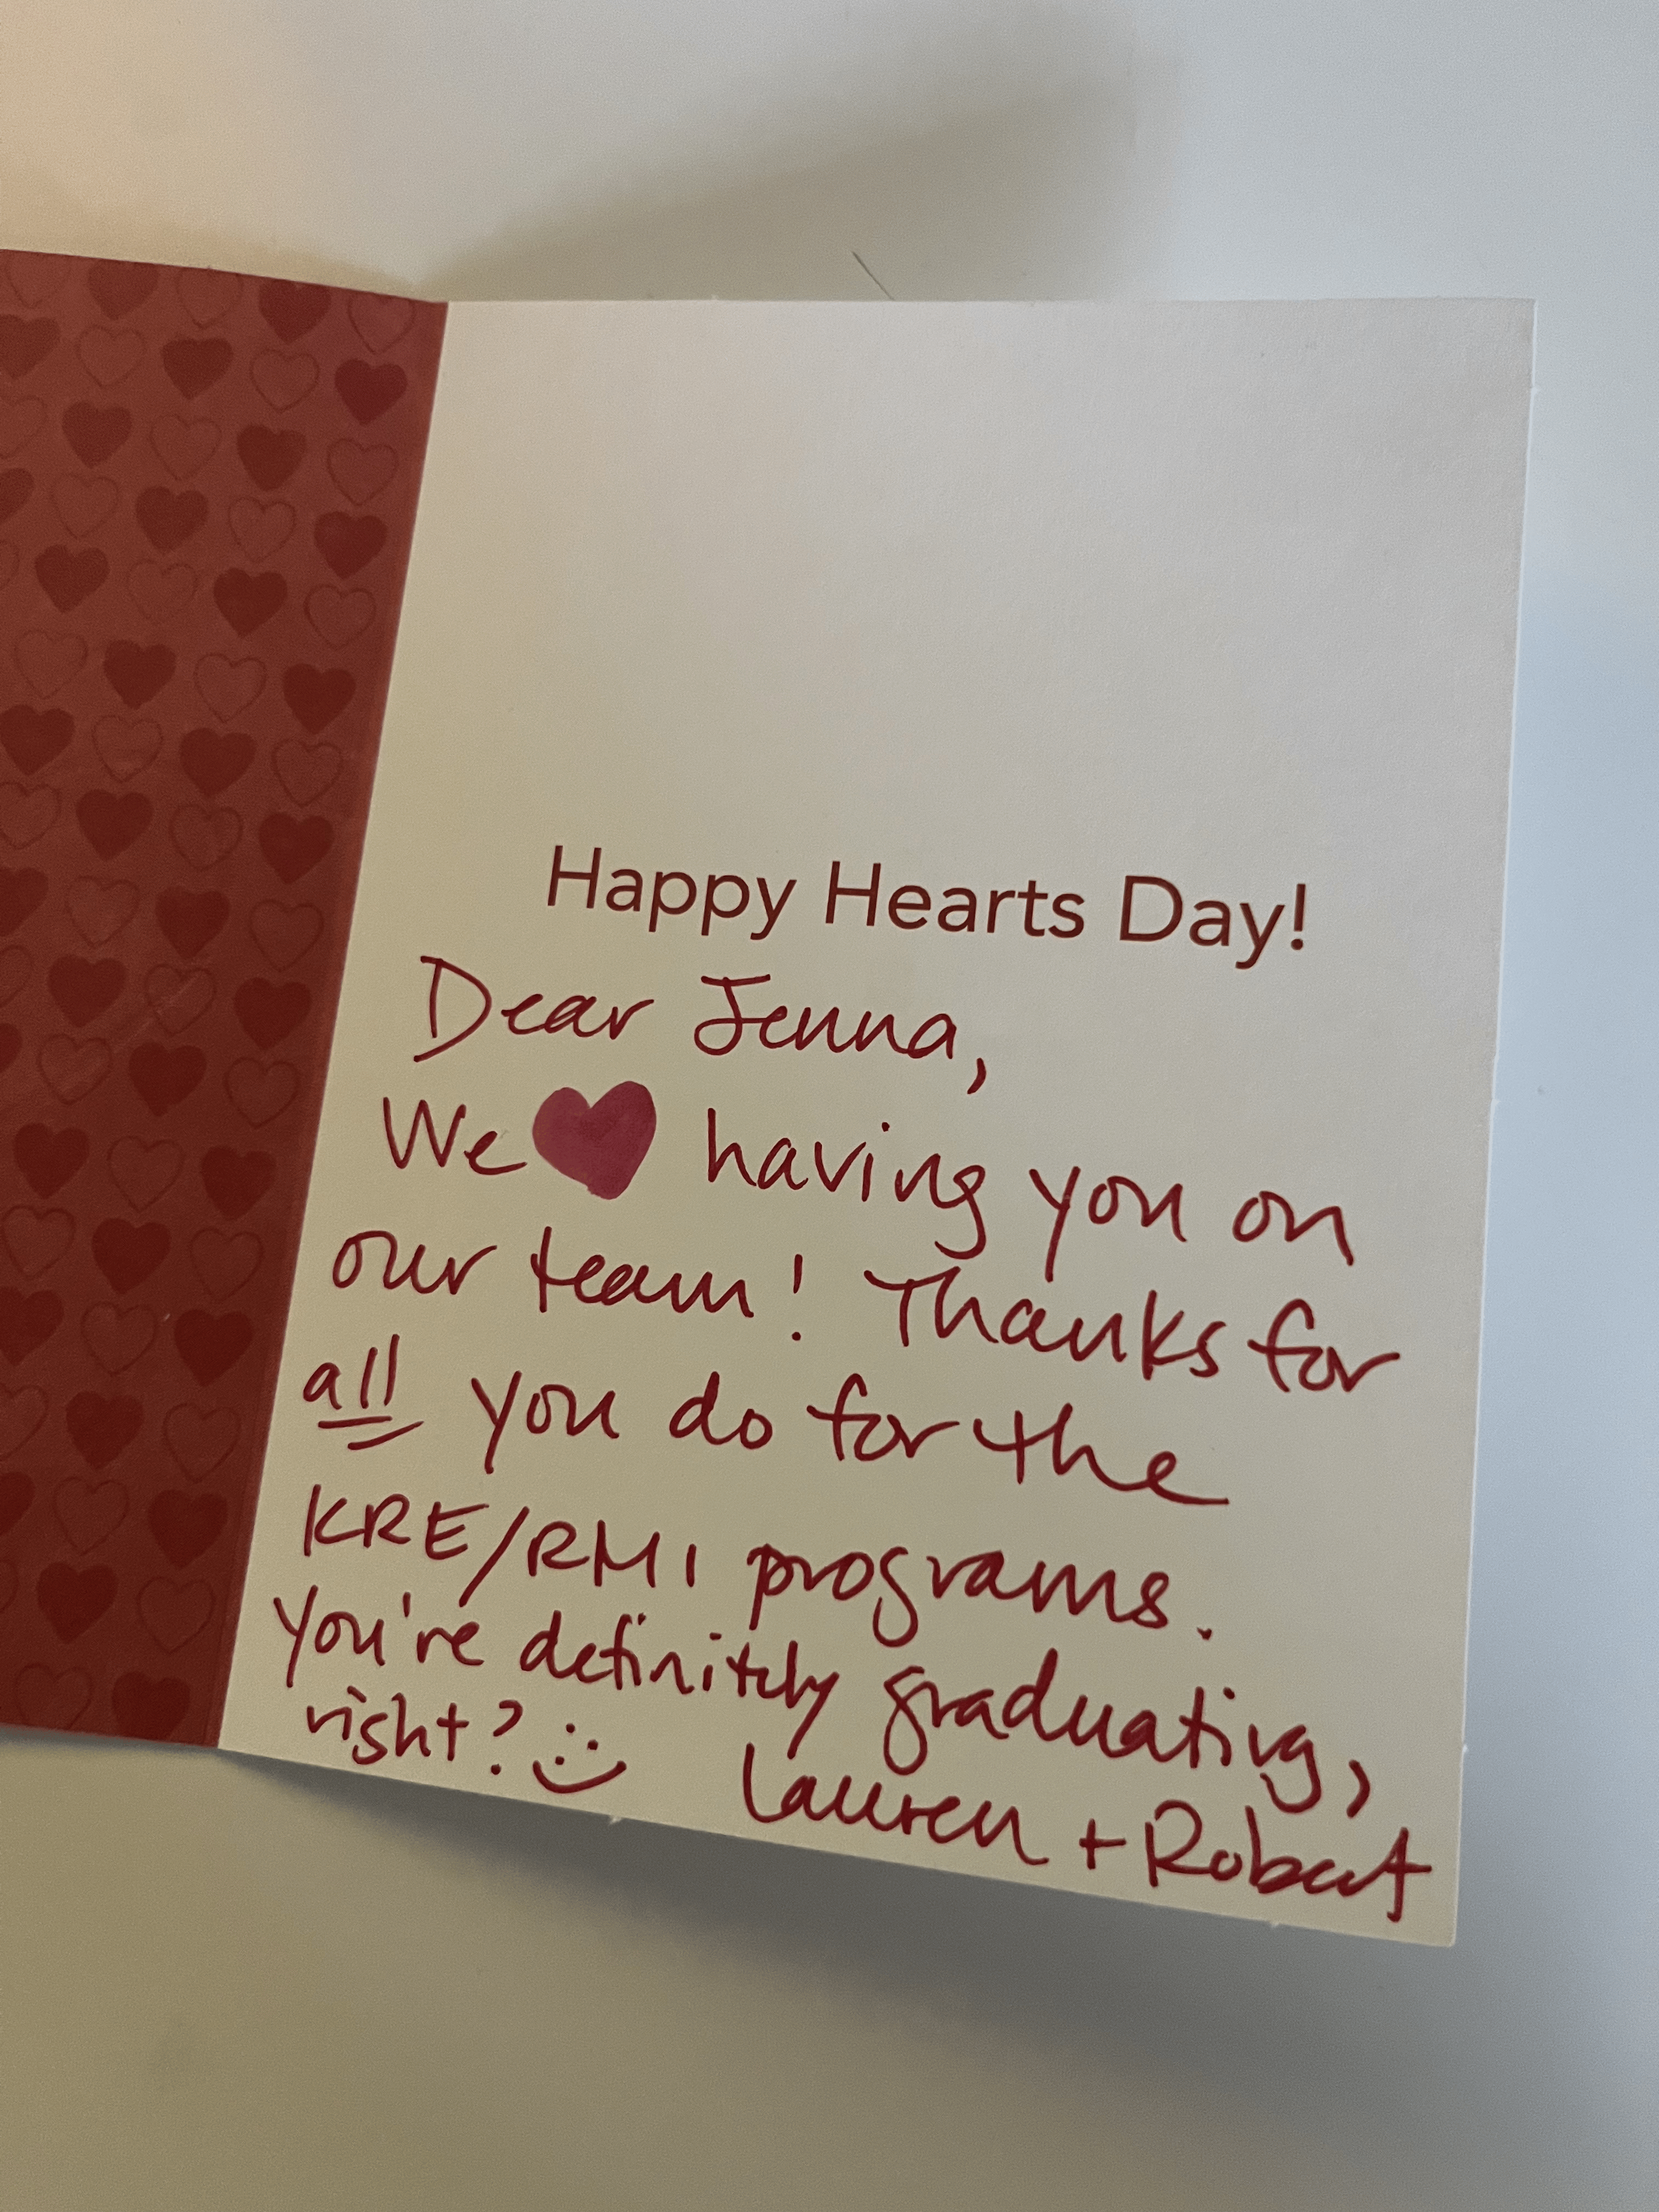 Happy Hearts Day!
Dear Jenna,
We ♥ having you on
our team! Thanks for
all you do for the
KRE/RMI programs.
You're definitely graduating,
right? :)
Lauren + Robert